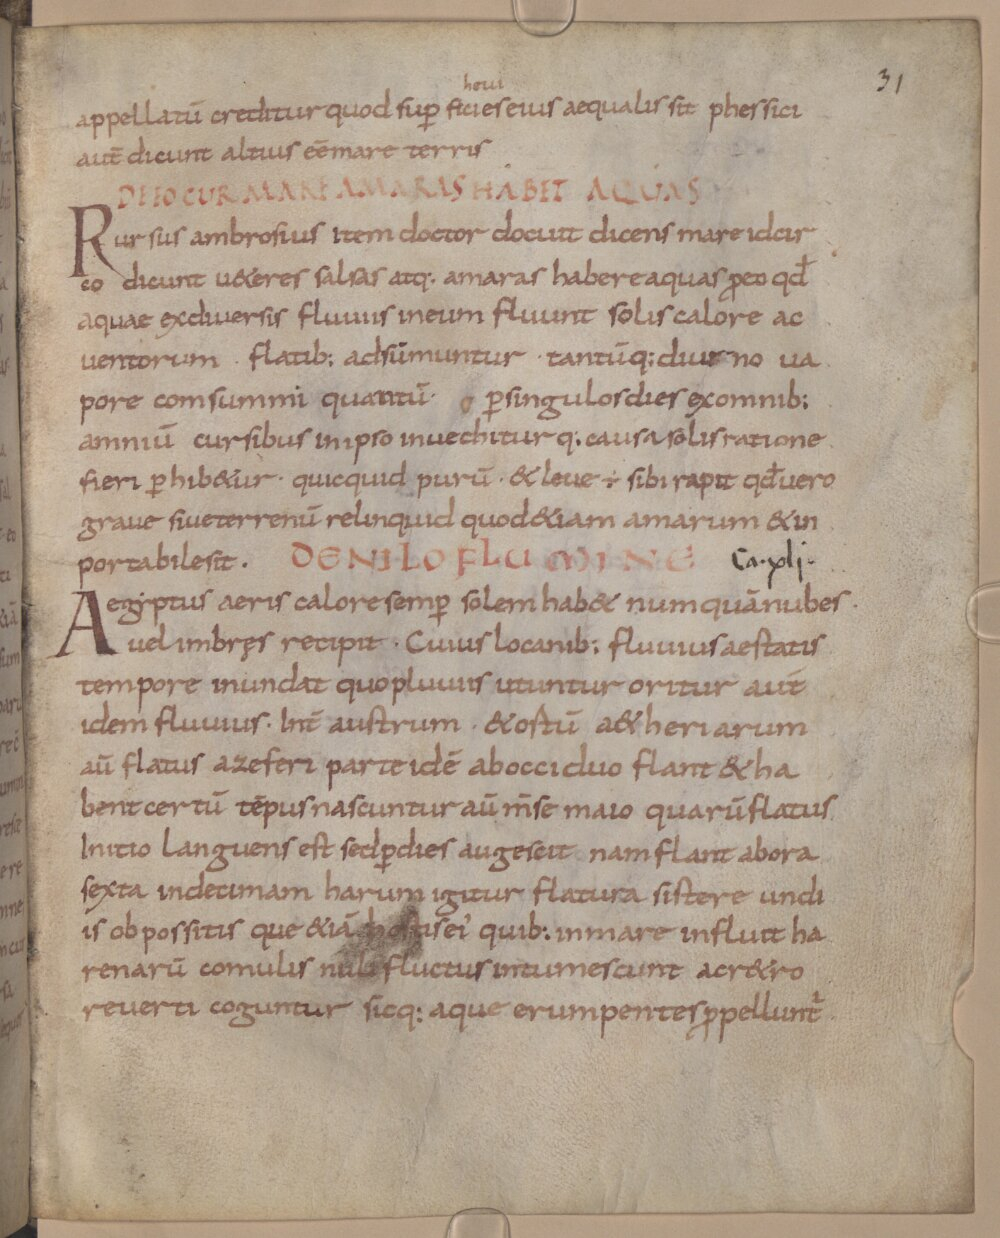 31
heiu
appellatū creditur quod suꝑ ficies eius aequalis sit phessici
autē dicunt altius eē mare terris
DE EO CUR MARE AMARAS HABET AQUAS
Rursus ambrosius item doctor docuit dicens mare idcir
co dicunt u&eres salsas atq: amaras habere aquas ꝓeo qđ
aquae ex diuersis fluuiis in eum fluunt solis calore ac
uentorum · flatib: adsūmuntur · tantūq: diurno ua
pore comsummi quantū · ꝑ singulos dies ex omnib:
amniū cursibus in ipso inuechitur q: causa solis ratione
fieri ꝑhib&ur · quicquid purū · & leue ÷ sibi rapit qđ uero
graue siue terrenū relinquid quod &iam amarum & in
portabile sit . DE NILO FLUMINE Ca·xlj·
Aegyptus aeris calore semꝑ solem hab& numquā nubes ·
uel imbręs recipit · Cuius loca nib: fluuius aestatis
tempore inundat quo pluuiis utuntur oritur autē
idem fluuius · Int̄ austrum · & ostū a&heriarum
aū flatus a zeferi parte idē ab occiduo flant & ha
bent certū tēpus nascuntur aū m̄se maio quarū flatus
Initio languens est sed ꝑ dies augescit nam flant ab ora
sexta in decimam harum igitur flatura sistere undi
is ob possitis que &iā hostis ei' quib: in mare influit ha
renarū comulis nili fluctus intumescunt ac r&ro
reuerti coguntur sicq: aque erumpentes ꝓpellunt̄